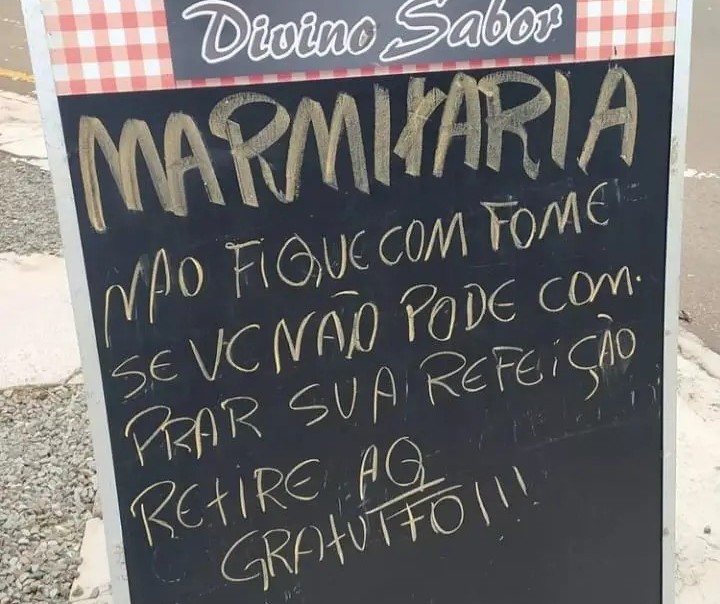 Divino Sabor
MARMITARIA
NÃO FIQUE COM FOME
SE VC NÃO PODE COM-
PRAR SUA REFEIÇÃO
RETIRE AQ
GRATUITO!!!